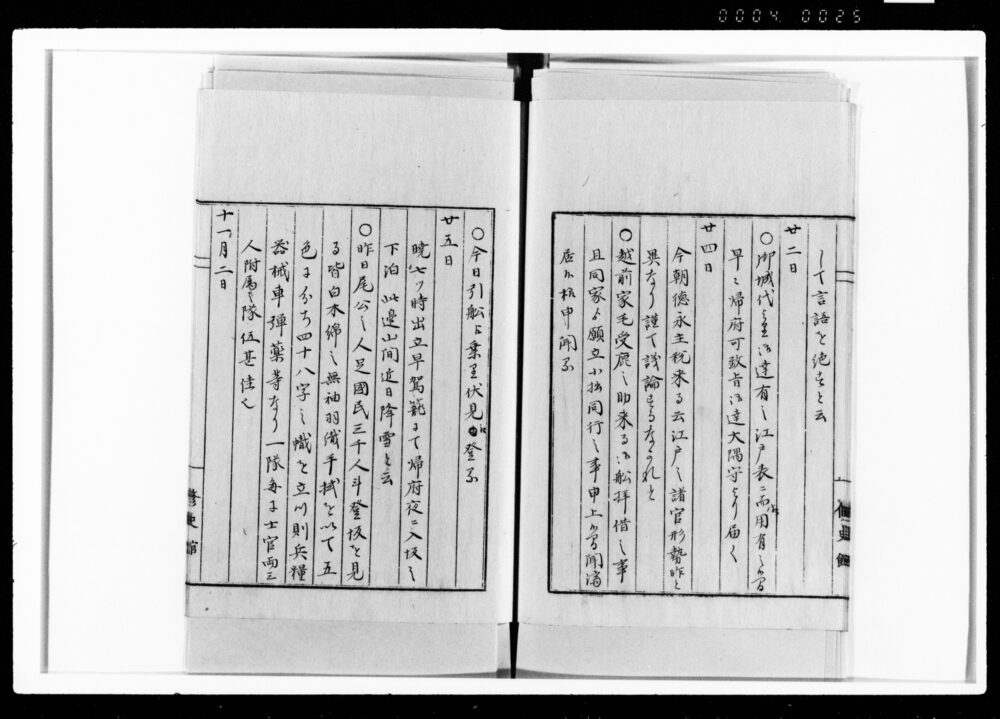 0004 0025
して言語を絶すと云
廿二日
○御城代ゟ達有之江戸表ニ而用有之
早々帰府可致旨御達大隅守ゟ届く
廿四日
今朝徳永主税来る云江戸之諸官形勢昨と
異なり謹て議論するなかれと
○越前家毛受鹿之助来る御船拝借之事
且同家ゟ願立小拙同行之事申上候
○今日引船ニ乗り伏見ニ登る
廿五日
暁七ツ時出立早駕籠ニて帰府夜ニ入坂之
下泊此邊山間近日降雪と云
○昨日尾公之人足國民三千人斗登坂を見
る皆白木綿之無袖羽織手拭を以て五
色に分ち四十八字之幟を立つ則兵糧
器械車弾藥等なり一隊毎に士官両三
人附属之隊伍甚佳也
十一月二日
修史館
修史館